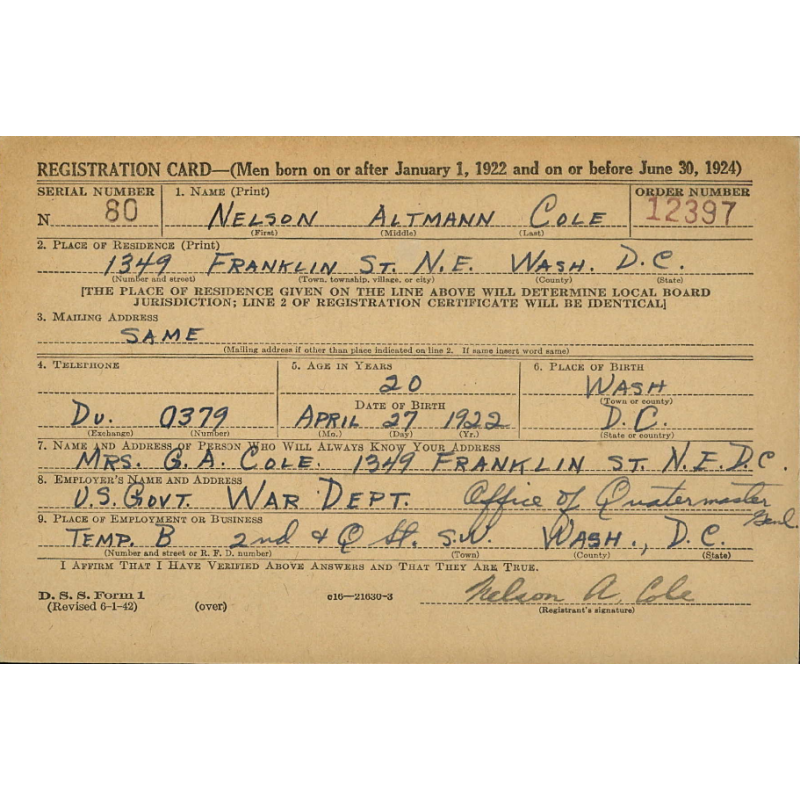 REGISTRATION CARD—(Men born on or after January 1, 1922 and on or before June 30, 1924)
SERIAL NUMBER
1. NAME (Print)
ORDER NUMBER
N 80
NELSON ALTMANN COLE
12397
(First) (Middle) (Last)
2. PLACE OF RESIDENCE (Print)
1349 FRANKLIN ST. N.E. WASH. D.C.
(Number and street) (Town, township, village, or city) (County) (State)
[THE PLACE OF RESIDENCE GIVEN ON THE LINE ABOVE WILL DETERMINE LOCAL BOARD
JURISDICTION; LINE 2 OF REGISTRATION CERTIFICATE WILL BE IDENTICAL]
3. MAILING ADDRESS
SAME
(Mailing address if other than place indicated on line 2. If same insert word same)
4. TELEPHONE
5. AGE IN YEARS
6. PLACE OF BIRTH
20
WASH
(Town or county)
DATE OF BIRTH
DU. 0379
APRIL 27 1922
D.C.
(Exchange) (Number)
(Mo.) (Day) (Yr.)
(State or country)
7. NAME AND ADDRESS OF PERSON WHO WILL ALWAYS KNOW YOUR ADDRESS
MRS. G. A. COLE. 1349 FRANKLIN ST. N.E. D.C.
8. EMPLOYER'S NAME AND ADDRESS
U.S. GOVT. WAR DEPT. Office of Quatermaster Genl.
9. PLACE OF EMPLOYMENT OR BUSINESS
TEMP. B 2nd & Q St. S.W. WASH., D.C.
(Number and street or R. F. D. number) (Town) (County) (State)
I AFFIRM THAT I HAVE VERIFIED ABOVE ANSWERS AND THAT THEY ARE TRUE.
D. S. S. Form 1
(Revised 6-1-42)
(over)
c16—21630-3
Nelson A. Cole
(Registrant's signature)